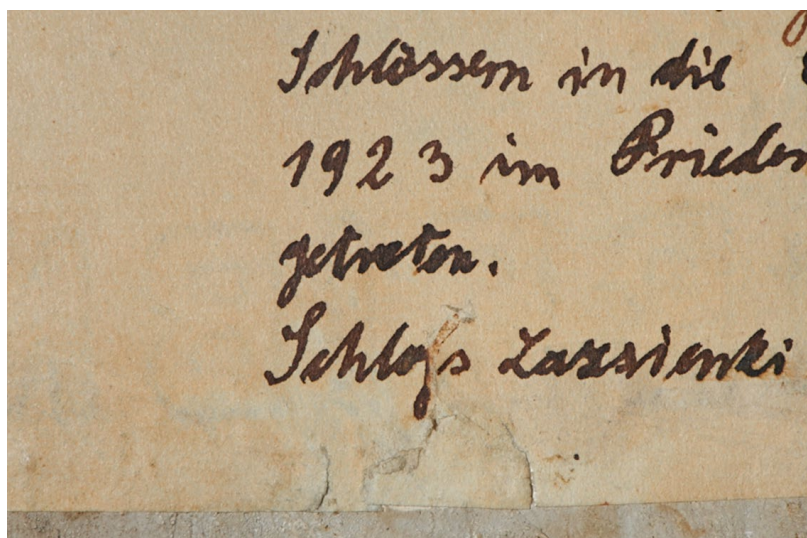 Schlössern in die
1923 im Frieden
getreten.
Schloß Lazsienki